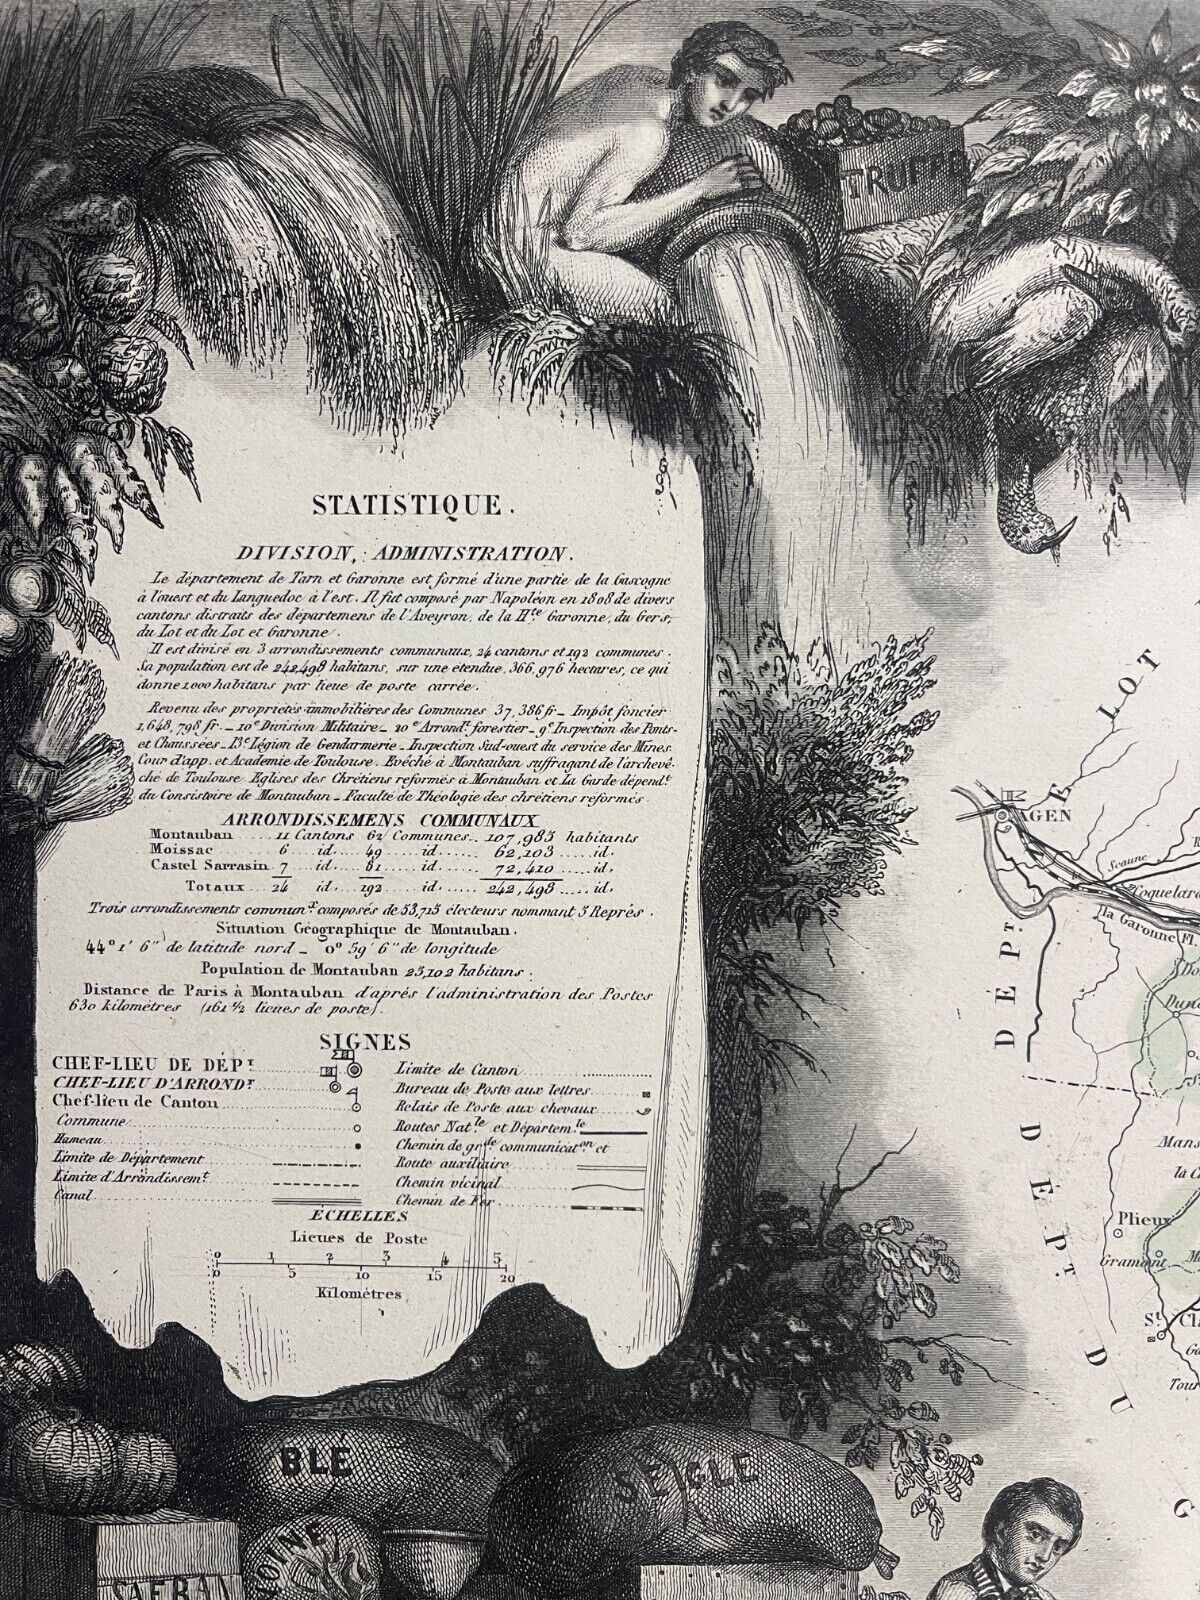 TRUFFE
STATISTIQUE.
DIVISION, ADMINISTRATION.
Le département de Tarn et Garonne est formé d'une partie de la Gascogne
à l'ouest et du Languedoc à l'est. Il fut composé par Napoléon en 1808 de divers
cantons distraits des départemens de l'Aveyron, de la Hte. Garonne, du Gers,
du Lot et du Lot et Garonne.
Il est divisé en 3 arrondissements communaux, 24 cantons et 192 communes.
Sa population est de 242,498 habitans, sur une étendue, 366,976 hectares, ce qui
donne 1,000 habitans par lieue de poste carrée.
Revenu des propriétés immobilières des Communes 37,386 fr _ Impôt foncier
1,648,798 fr. _ 10e Division Militaire _ 10e Arrondt. forestier _ 9e Inspection des Ponts-
et Chaussées _ 13e Légion de Gendarmerie _ Inspection Sud-ouest du service des Mines.
Cour d'app. et Academie de Toulouse. Evêché à Montauban suffragant de l'archevê-
ché de Toulouse. Eglises des Chrétiens reformés à Montauban et La Garde dépendt.
du Consistoire de Montauban _ Faculté de Théologie des chrétiens reformés
ARRONDISSEMENS COMMUNAUX
Montauban .... 11 Cantons 62 Communes.. 107,985 habitants
Moissac ...... 6 id.... 49 ..... id...... 62,103 ..... id.
Castel Sarrasin. 7 .... id.... 81 ..... id...... 72,410 ..... id.
Totaux ... 24 id.... 192 ..... id...... 242,498 ..... id.
Trois arrondissements communx. composés de 53,713 électeurs nommant 5 Représ.
Situation Géographique de Montauban.
44° 1' 6" de latitude nord _ 0° 59' 6" de longitude
Population de Montauban 25,102 habitans.
Distance de Paris à Montauban d'après l'administration des Postes
630 kilomètres (161 1/2 lieues de poste).
SIGNES
CHEF-LIEU DE DÉPt.
CHEF-LIEU D'ARRONDt.
Chef-lieu de Canton
Commune
Hameau
Limite de Département
Limite d'Arrondissemt.
Canal
Limite de Canton
Bureau de Poste aux lettres
Relais de Poste aux chevaux
Routes Natle et Départemle
Chemin de grde communicaton et
Route auxiliaire
Chemin vicinal
Chemin de Fer
ÉCHELLES
Lieues de Poste
0 1 2 3 4 5
0 5 10 15 20
Kilomètres
BLÉ
SEIGLE
SAFRAN
DÉPT. DE LOT
AGEN
Scaune
Coquelard
la Garonne Fl.
DÉPT. DU G
Plieux
Gramont
St. Cla
Tour